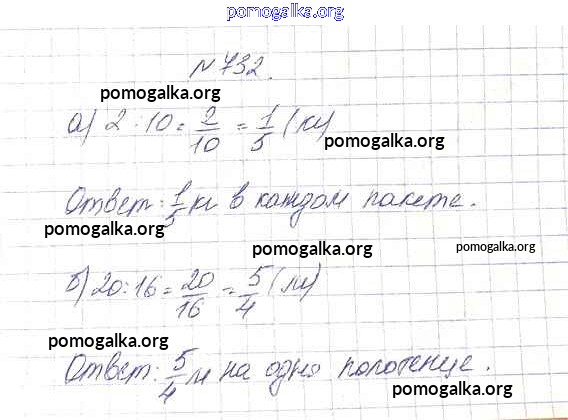 pomogalka.org
№732.
pomogalka.org
а) 2 : 10 = 2/10 = 1/5 (кг)
pomogalka.org
Ответ: 1/5 кг в каждом пакете.
pomogalka.org
pomogalka.org
pomogalka.org
б) 20 : 16 = 20/16 = 5/4 (м)
pomogalka.org
Ответ: 5/4 м на одно полотенце.
pomogalka.org